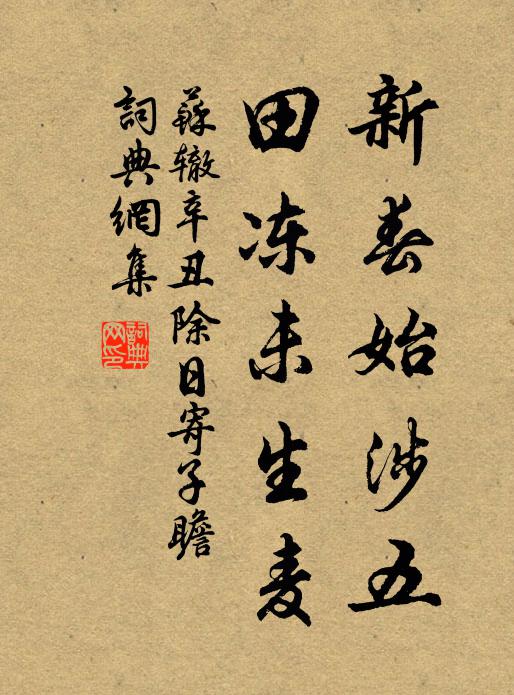 新春始涉五
田冻未生麦
蘇辙辛丑除日寄子瞻
詞典網集
詞典
网印